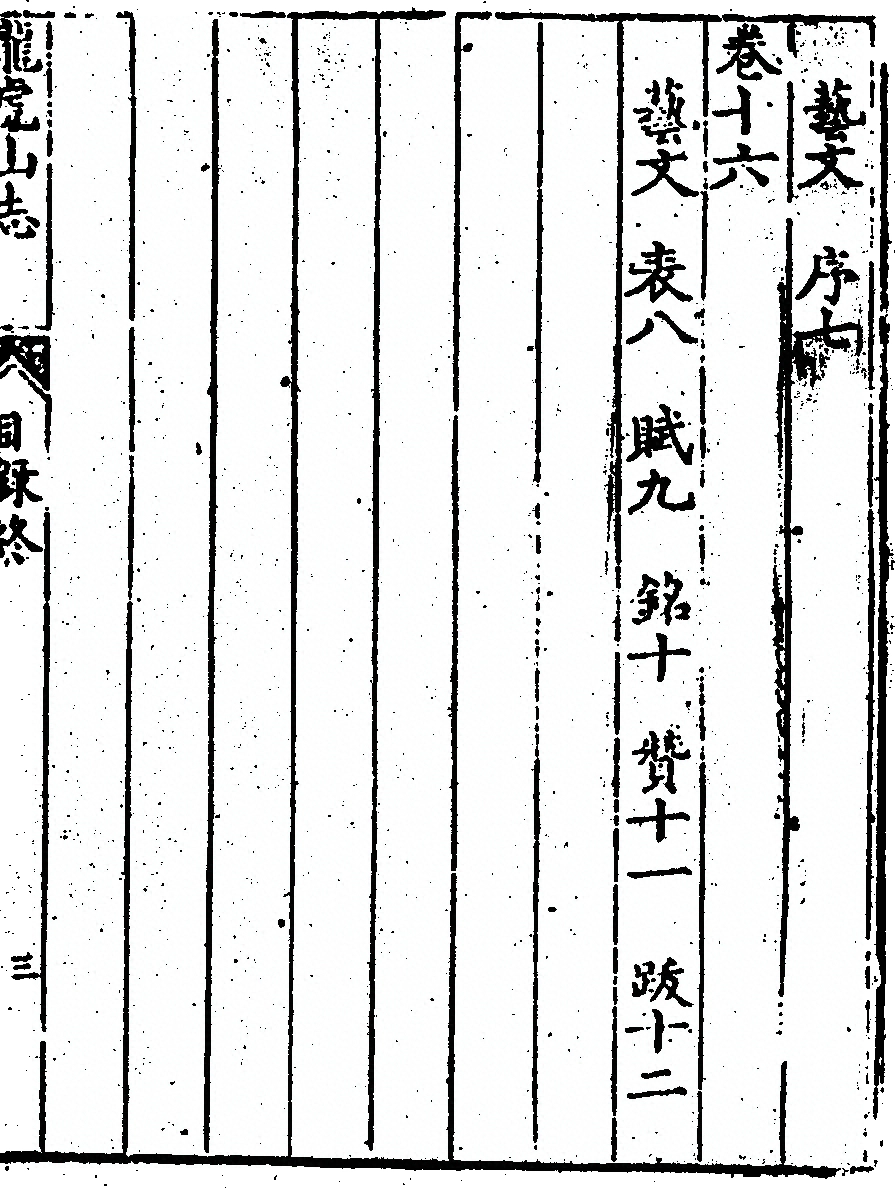 藝文 序七
卷十六
藝文 表八 賦九 銘十 贊十一 跋十二
龍虎山志 目錄終 三